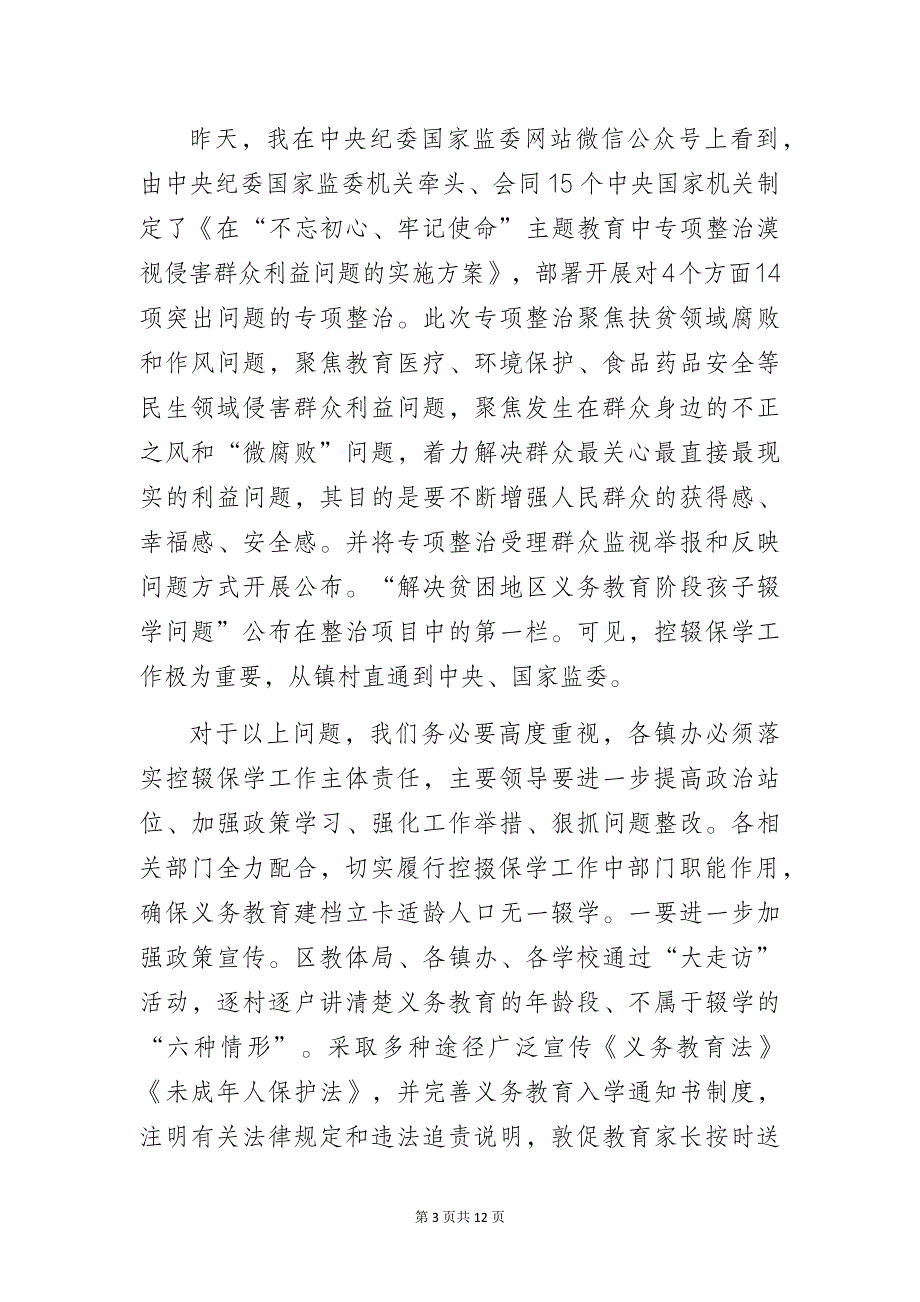 昨天，我在中央纪委国家监委网站微信公众号上看到，
由中央纪委国家监委机关牵头、会同15个中央国家机关制
定了《在“不忘初心、牢记使命”主题教育中专项整治漠
视侵害群众利益问题的实施方案》，部署开展对4个方面14
项突出问题的专项整治。此次专项整治聚焦扶贫领域腐败
和作风问题，聚焦教育医疗、环境保护、食品药品安全等
民生领域侵害群众利益问题，聚焦发生在群众身边的不正
之风和“微腐败”问题，着力解决群众最关心最直接最现
实的利益问题，其目的是要不断增强人民群众的获得感、
幸福感、安全感。并将专项整治受理群众监视举报和反映
问题方式开展公布。“解决贫困地区义务教育阶段孩子辍
学问题”公布在整治项目中的第一栏。可见，控辍保学工
作极为重要，从镇村直通到中央、国家监委。
对于以上问题，我们务必要高度重视，各镇办必须落
实控辍保学工作主体责任，主要领导要进一步提高政治站
位、加强政策学习、强化工作举措、狠抓问题整改。各相
关部门全力配合，切实履行控掇保学工作中部门职能作用，
确保义务教育建档立卡适龄人口无一辍学。一要进一步加
强政策宣传。区教体局、各镇办、各学校通过“大走访”
活动，逐村逐户讲清楚义务教育的年龄段、不属于辍学的
“六种情形”。采取多种途径广泛宣传《义务教育法》
《未成年人保护法》，并完善义务教育入学通知书制度，
注明有关法律规定和违法追责说明，敦促教育家长按时送
第 3 页共 12 页